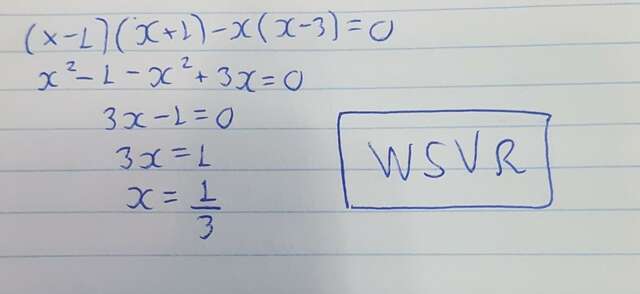 (x-1)(x+1)-x(x-3)=0
x²-1-x²+3x=0
3x-1=0
3x=1
x=1/3
WSVR